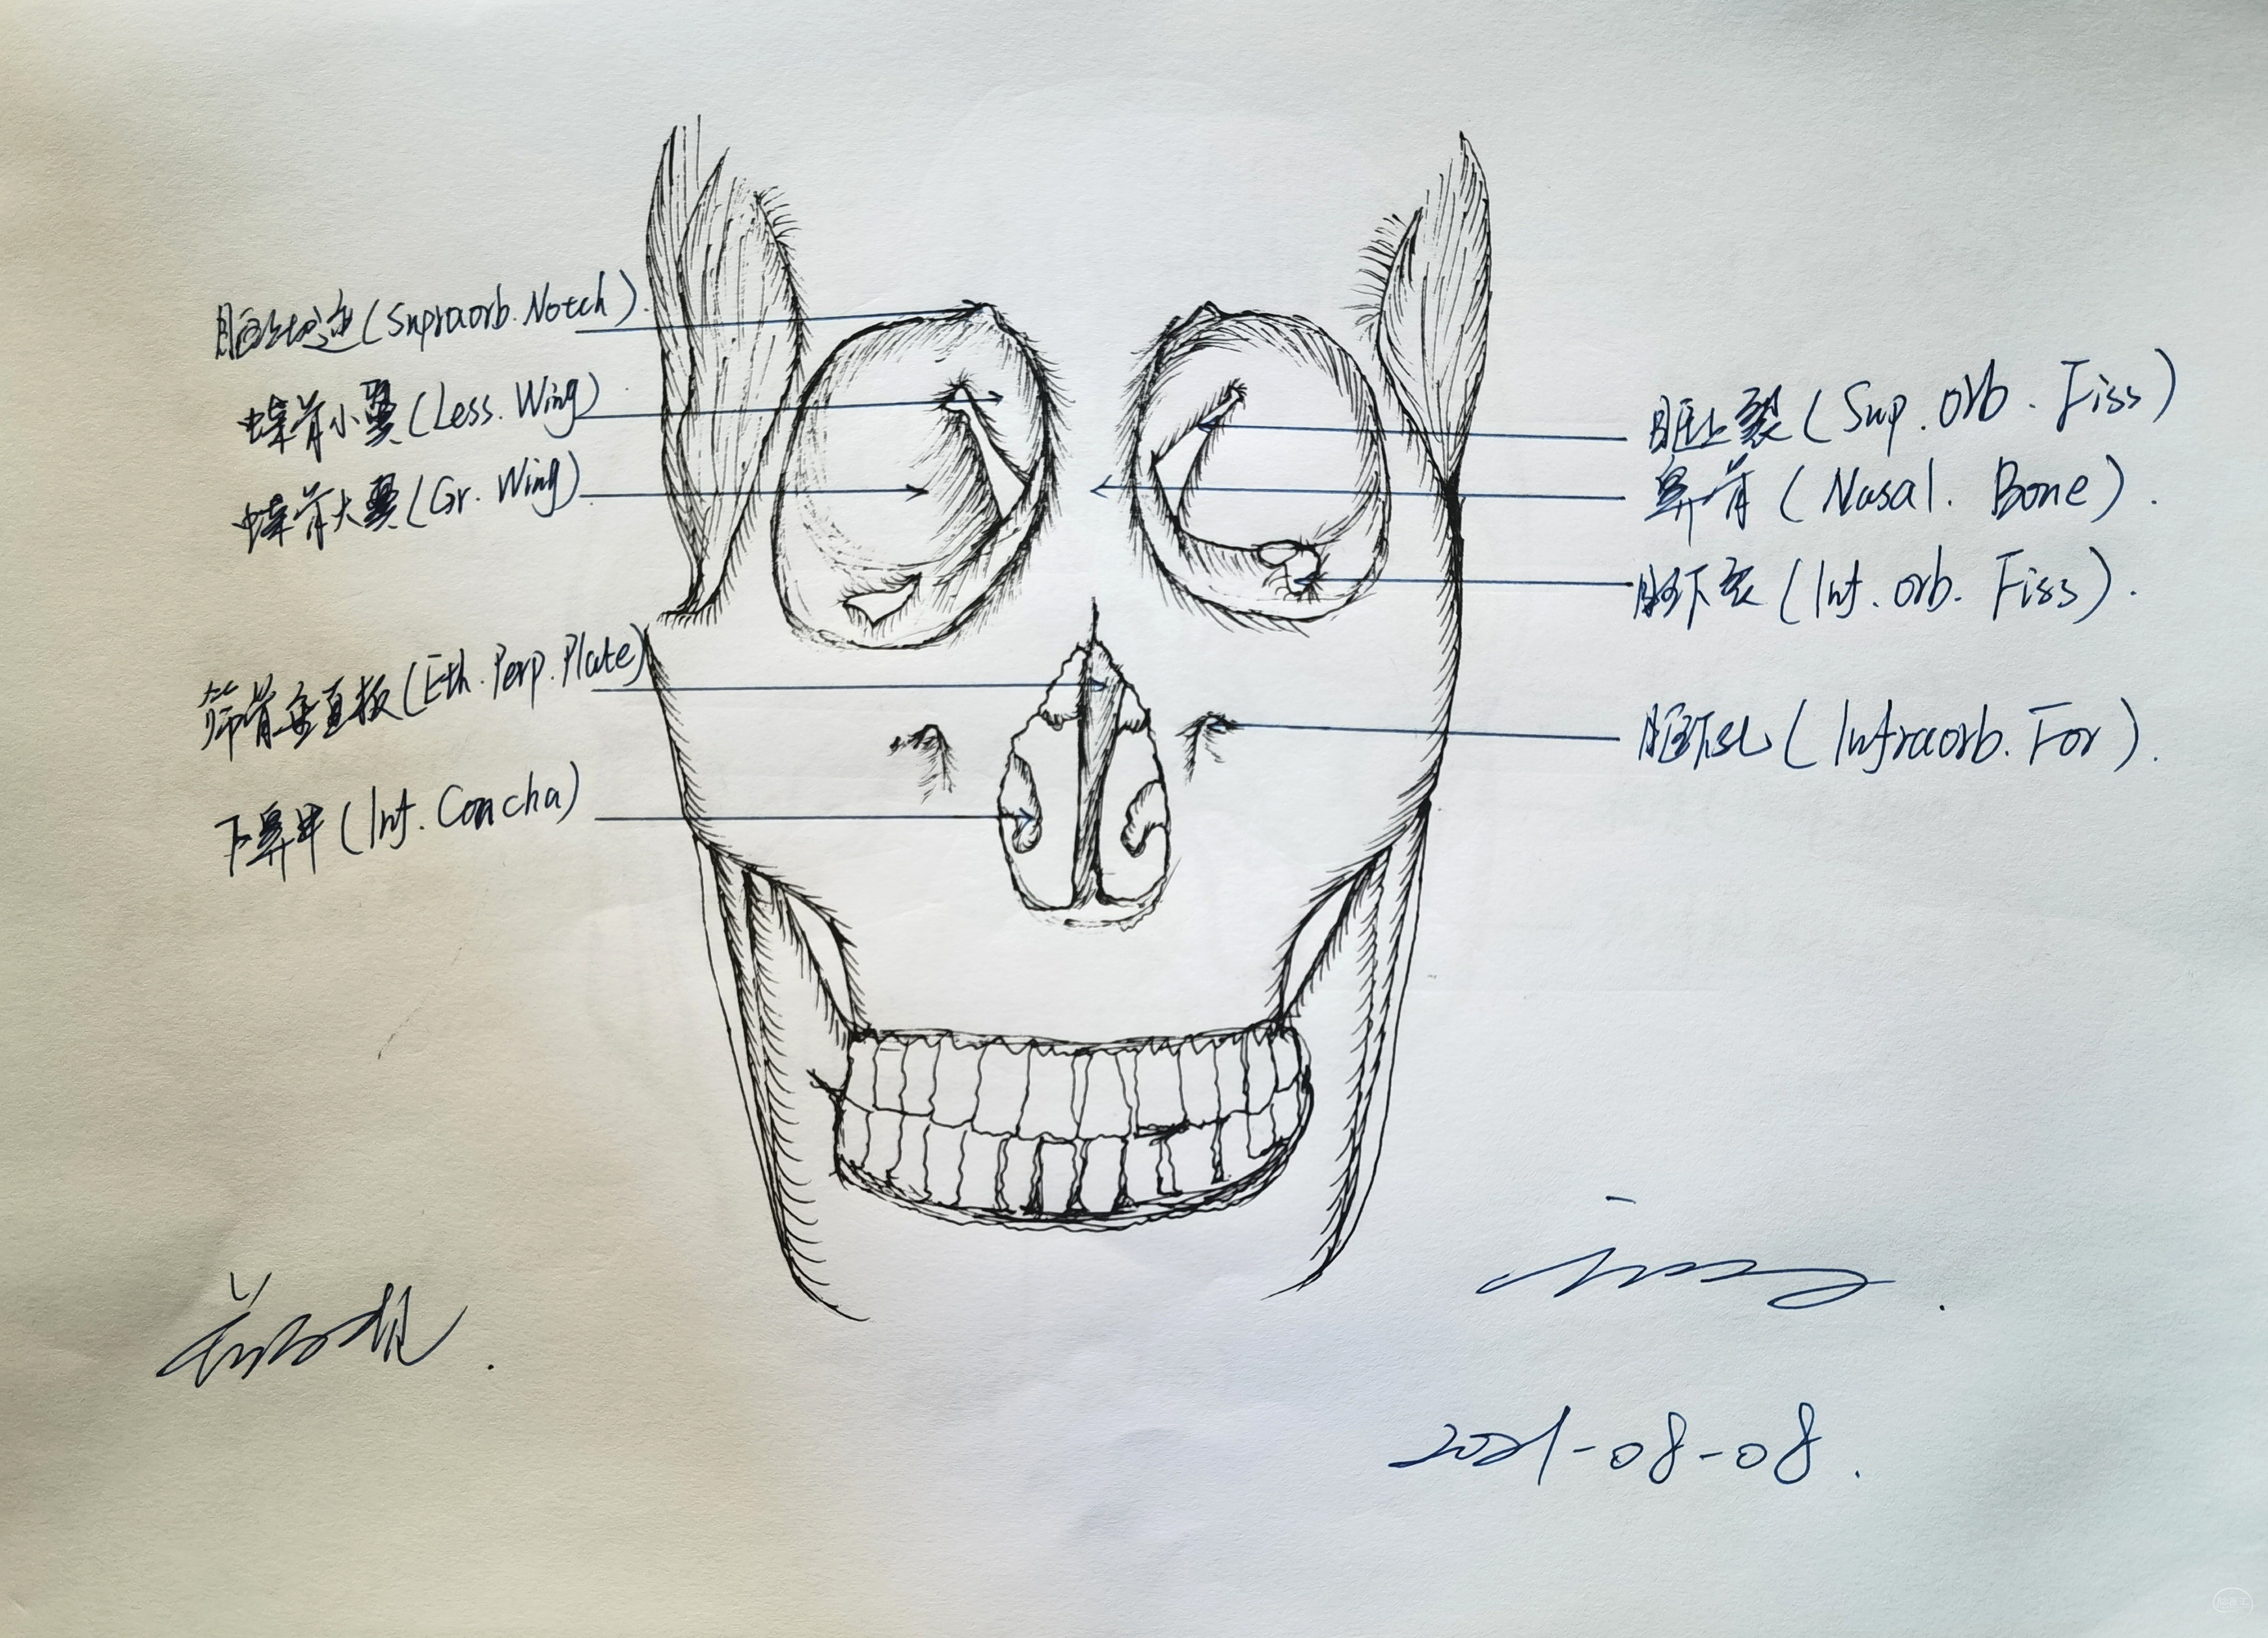 眶上切迹(Supraorb. Notch).
蝶骨小翼(Less. Wing).
蝶骨大翼(Gr. Wing).
筛骨垂直板(Eth. Perp. Plate)
下鼻甲(Inf. Concha)
眶上裂(Sup. orb. Fiss)
鼻骨(Nasal. Bone).
眶下裂(Inf. orb. Fiss).
眶下孔(Infraorb. For).
2021-08-08.